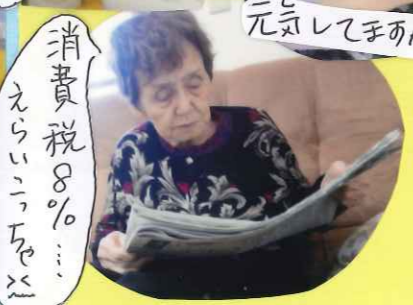 元気してますか
消費税8%…
えらいこっちゃ><